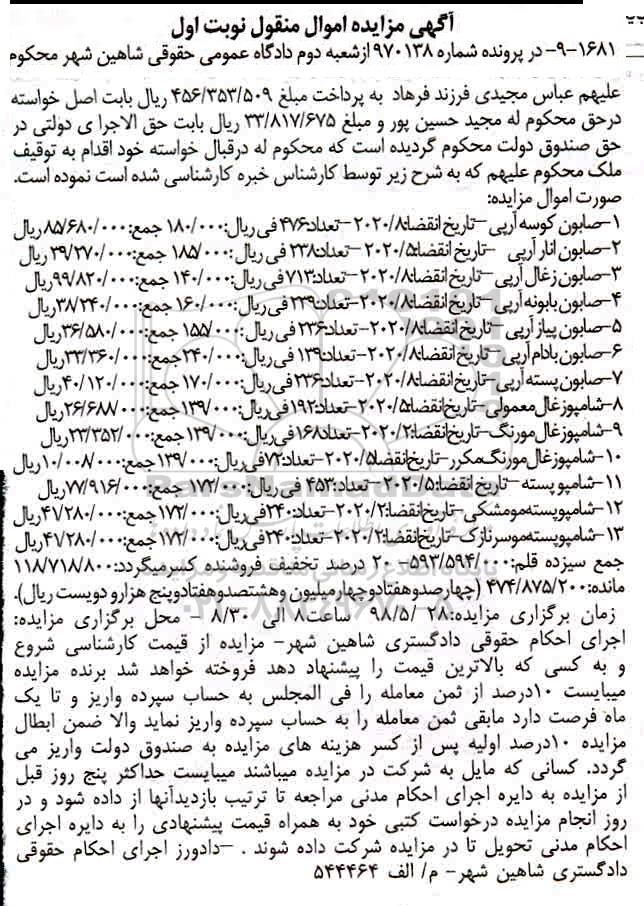 آگهی مزایده اموال منقول نوبت اول
۱۶۸۱-۹- در پرونده شماره ۹۷۰۱۳۸ ازشعبه دوم دادگاه عمومی حقوقی شاهین شهر محکوم
علیهم عباس مجیدی فرزند فرهاد به پرداخت مبلغ ۴۵۶/۳۵۳/۵۰۹ ریال بابت اصل خواسته
درحق محکوم له مجید حسین پور و مبلغ ۳۳/۸۱۷/۶۷۵ ریال بابت حق الاجرا ی دولتی در
حق صندوق دولت محکوم گردیده است که محکوم له درقبال خواسته خود اقدام به توقیف
ملک محکوم علیهم که به شرح زیر توسط کارشناس خبره کارشناسی شده است نموده است.
صورت اموال مزایده:
۱-صابون کوسه آرپی -تاریخ انقضا:۲۰۲۰/۸ -تعداد:۴۷۶ فی ریال:۱۸۰/۰۰۰ جمع:۸۵/۶۸۰/۰۰۰ریال
۲-صابون انار آرپی -تاریخ انقضا:۲۰۲۰/۵ -تعداد:۲۳۸ فی ریال:۱۸۵/۰۰۰ جمع:۳۹/۲۷۰/۰۰۰ ریال
۳-صابون زغال آرپی -تاریخ انقضا:۲۰۲۰/۸ -تعداد:۷۱۳ فی ریال:۱۴۰/۰۰۰ جمع:۹۹/۸۲۰/۰۰۰ریال
۴-صابون بابونه آرپی -تاریخ انقضا:۲۰۲۰/۸ -تعداد:۲۳۹ فی ریال:۱۶۰/۰۰۰ جمع:۳۸/۲۴۰/۰۰۰ریال
۵-صابون پیاز آرپی -تاریخ انقضا:۲۰۲۰/۸ -تعداد:۲۳۶ فی ریال:۱۵۵/۰۰۰ جمع:۳۶/۵۸۰/۰۰۰ریال
۶-صابون بادام آرپی -تاریخ انقضا:۲۰۲۰/۸ -تعداد:۱۳۹ فی ریال:۲۴۰/۰۰۰ جمع:۳۳/۳۶۰/۰۰۰ریال
۷-صابون پسته آرپی -تاریخ انقضا:۲۰۲۰/۸ -تعداد:۲۳۶ فی ریال:۱۷۰/۰۰۰ جمع:۴۰/۱۲۰/۰۰۰ریال
۸-شامپوزغال معمولی-تاریخ انقضا:۲۰۲۰/۵-تعداد:۱۹۲فی ریال:۱۳۹/۰۰۰ جمع:۲۶/۶۸۸/۰۰۰ریال
۹-شامپوزغال مورنگ-تاریخ انقضا:۲۰۲۰/۲-تعداد:۱۶۸فی ریال:۱۳۹/۰۰۰ جمع:۲۳/۳۵۲/۰۰۰ریال
۱۰-شامپوزغال مورنگ مکرر-تاریخ انقضا:۲۰۲۰/۵-تعداد:۷۲فی ریال:۱۳۹/۰۰۰ جمع:۱۰/۰۰۸/۰۰۰ریال
۱۱-شامپو پسته -تاریخ انقضا:۲۰۲۰/۵-تعداد:۴۵۳ فی ریال:۱۷۲/۰۰۰ جمع:۷۷/۹۱۶/۰۰۰ریال
۱۲-شامپوپسته مومشکی-تاریخ انقضا:۲۰۲۰/۲-تعداد:۲۴۰فی ریال:۱۷۲/۰۰۰ جمع:۴۱/۲۸۰/۰۰۰ریال
۱۳-شامپوپسته موسرنازک-تاریخ انقضا:۲۰۲۰/۲-تعداد:۲۴۰فی ریال:۱۷۲/۰۰۰ جمع:۴۱/۲۸۰/۰۰۰ریال
جمع سیزده قلم:۵۹۳/۵۹۴/۰۰۰- ۲۰ درصد تخفیف فروشنده کسرمیگردد:۱۱۸/۷۱۸/۸۰۰
مانده:۴۷۴/۸۷۵/۲۰۰ (چهارصدوهفتادوچهارمیلیون وهشتصدوهفتادوپنج هزارو دویست ریال).
زمان برگزاری مزایده:۲۸ /۹۸/۵ ساعت۸ الی ۸/۳۰ - محل برگزاری مزایده:
اجرای احکام حقوقی دادگستری شاهین شهر- مزایده از قیمت کارشناسی شروع
و به کسی که بالاترین قیمت را پیشنهاد دهد فروخته خواهد شد برنده مزایده
میبایست ۱۰درصد از ثمن معامله را فی المجلس به حساب سپرده واریز و تا یک
ماه فرصت دارد مابقی ثمن معامله را به حساب سپرده واریز نماید والا ضمن ابطال
مزایده ۱۰درصد اولیه پس از کسر هزینه های مزایده به صندوق دولت واریز می
گردد. کسانی که مایل به شرکت در مزایده میباشند میبایست حداکثر پنج روز قبل
از مزایده به دایره اجرای احکام مدنی مراجعه تا ترتیب بازدیدآنها از داده شود و در
روز انجام مزایده درخواست کتبی خود به همراه قیمت پیشنهادی را به دایره اجرای
احکام مدنی تحویل تا در مزایده شرکت داده شوند . -دادورز اجرای احکام حقوقی
دادگستری شاهین شهر- م/ الف ۵۴۴۴۶۴